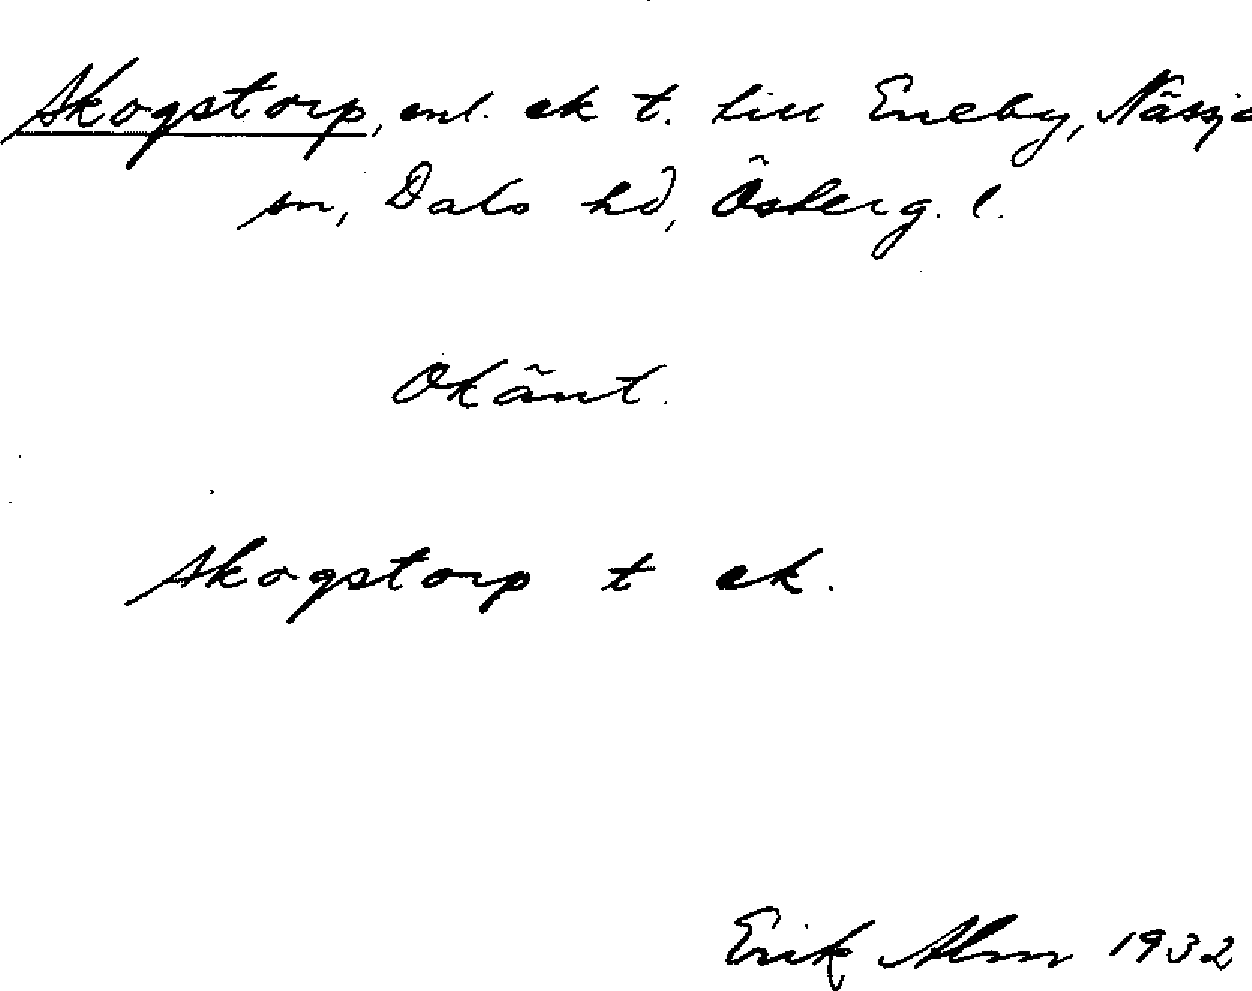 Skogstorp, enl. ek t. till Eneby, Nässja
sn, Dals hd, Österg. l.
Okänt.
Skogstorp t ek.
Erik Alm 1932